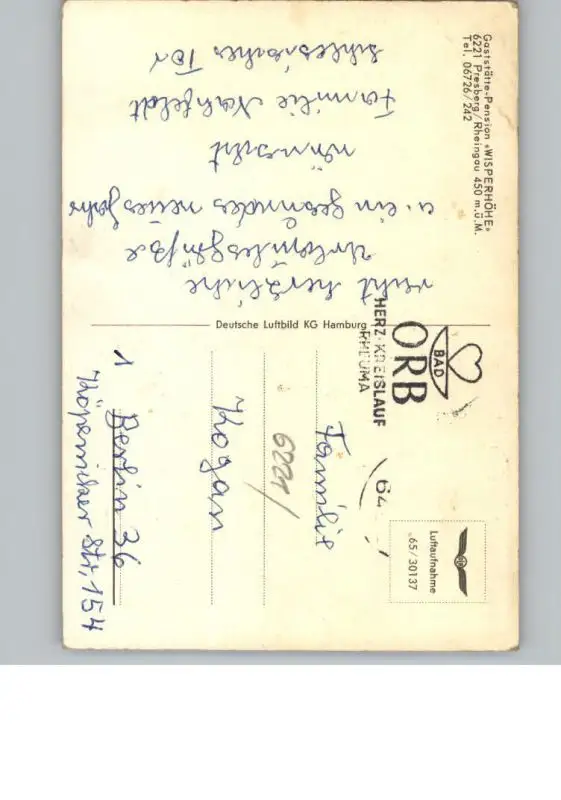 Gaststätte-Pension «WISPERHÖHE»
6221 Presberg/Rheingau 450 m.ü.M.
Tel. 06726/242
recht herzliche
Urlaubsgrüße
u. ein gesundes neues Jahr
wünscht
Familie
Schlesisches Tor
Deutsche Luftbild KG Hamburg
BAD
ORB
HERZ-KREISLAUF
RHEUMA
64
Luftaufnahme
65/30137
Familie
6221/
Kogan
1 Berlin 36
Köpenicker Str. 154